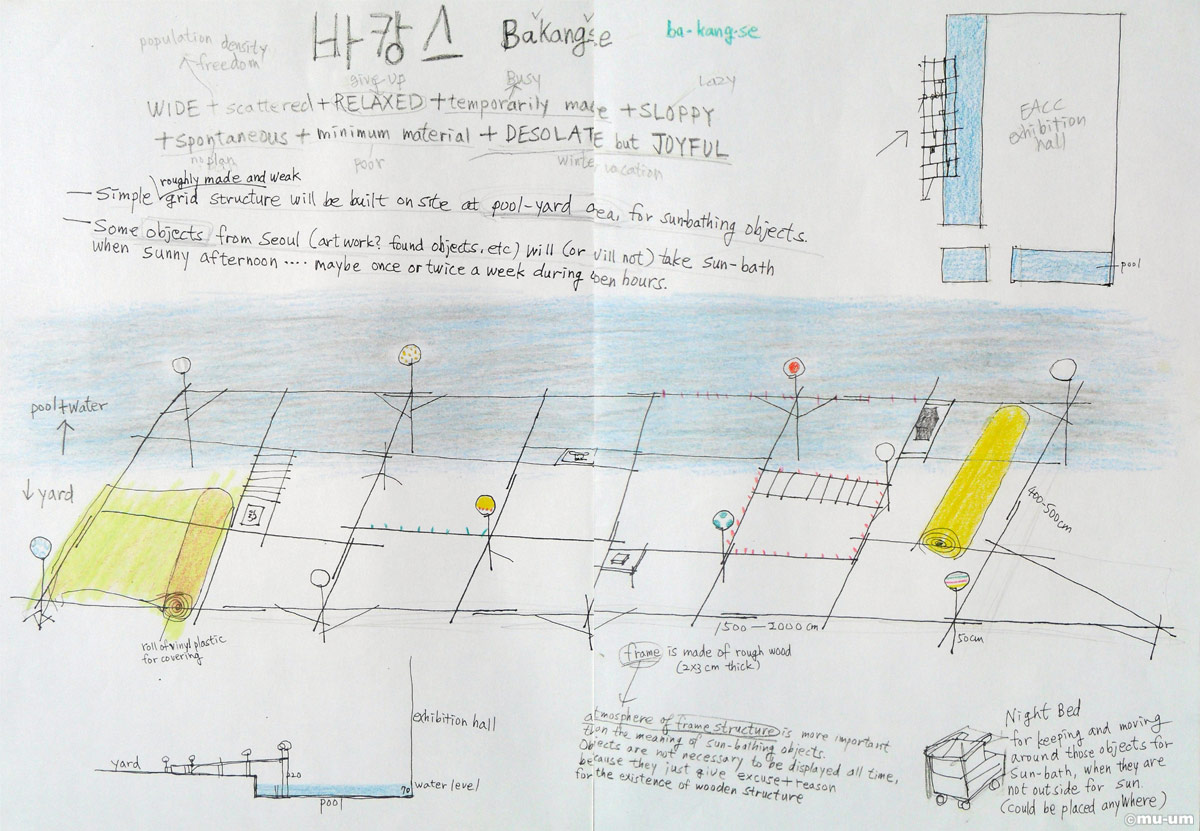 바캉스 Bakangse ba-kang-se
population density
freedom
give-up Busy Lazy
WIDE + scattered + RELAXED + temporarily made + SLOPPY
+ spontaneous + minimum material + DESOLATE but JOYFUL
no plan poor winter vacation
roughly made and weak
— Simple grid structure will be built on site at pool-yard area, for sunbathing objects.
— Some objects from Seoul (art work? found objects, etc) will (or will not) take sun-bath
when sunny afternoon .... maybe once or twice a week during open hours.
EACC
exhibition
hall
pool
pool+water
yard
400-500cm
1500—2000cm
50cm
roll of vinyl plastic
for covering
frame is made of rough wood
(2x3 cm thick)
atmosphere of frame structure is more important
then the meaning of sun-bathing objects.
Objects are not necessary to be displayed all time,
because they just give excuse+reason
for the existence of wooden structure
exhibition hall
yard
120
70
water level
pool
Night Bed
for keeping and moving
around those objects for
Sun-bath, when they are
not outside for sun.
(could be placed anywhere)
©mu-um